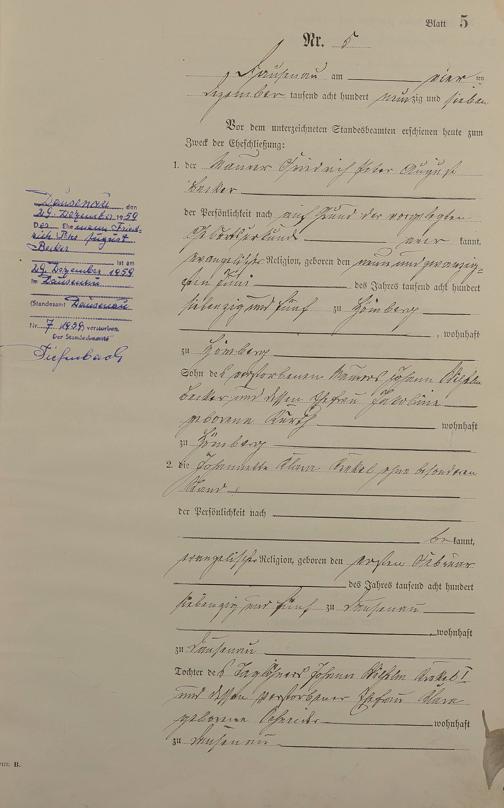 Blatt 5
Nr. 5
Dausenau am vier ten
Dezember tausend acht hundert neunzig und sieben
Vor dem unterzeichneten Standesbeamten erschienen heute zum
Zweck der Eheschließung:
1. der Maurer Friedrich Peter August
Becker
der Persönlichkeit nach auf Grund der vorgelegten
Geburtsurkunde aner kannt,
evangelischer Religion, geboren den neun und zwanzig-
sten Juni des Jahres tausend acht hundert
siebenzig und fünf zu Hömberg
, wohnhaft
zu Hömberg
Sohn des verstorbenen Maurers Johann Wilhelm
Becker und dessen Ehefrau
geborene wohnhaft
zu Hömberg
2. die Johannette Klara Kunkel, ohne besonderen
Stand
der Persönlichkeit nach
be kannt,
evangelischer Religion, geboren den ersten Februar
des Jahres tausend acht hundert
siebenzig und fünf zu Dausenau
, wohnhaft
zu Dausenau
Tochter des Taglöhners Johann Wilhelm I
und dessen verstorbener Ehefrau Klara
geborene wohnhaft
zu Dausenau
Dausenau, den
29. Dezember 1959
Der Ehemann Fried-
rich Peter August
Becker
ist am
29. Dezember 1959
in Dausenau
(Standesamt Dausenau
Nr. 7/1959) verstorben.
Der Standesbeamte
B.